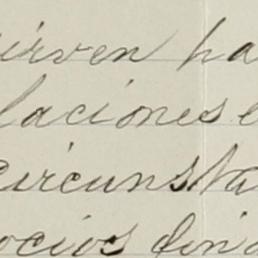 sirven ha
laciones e
circunsta
ocios